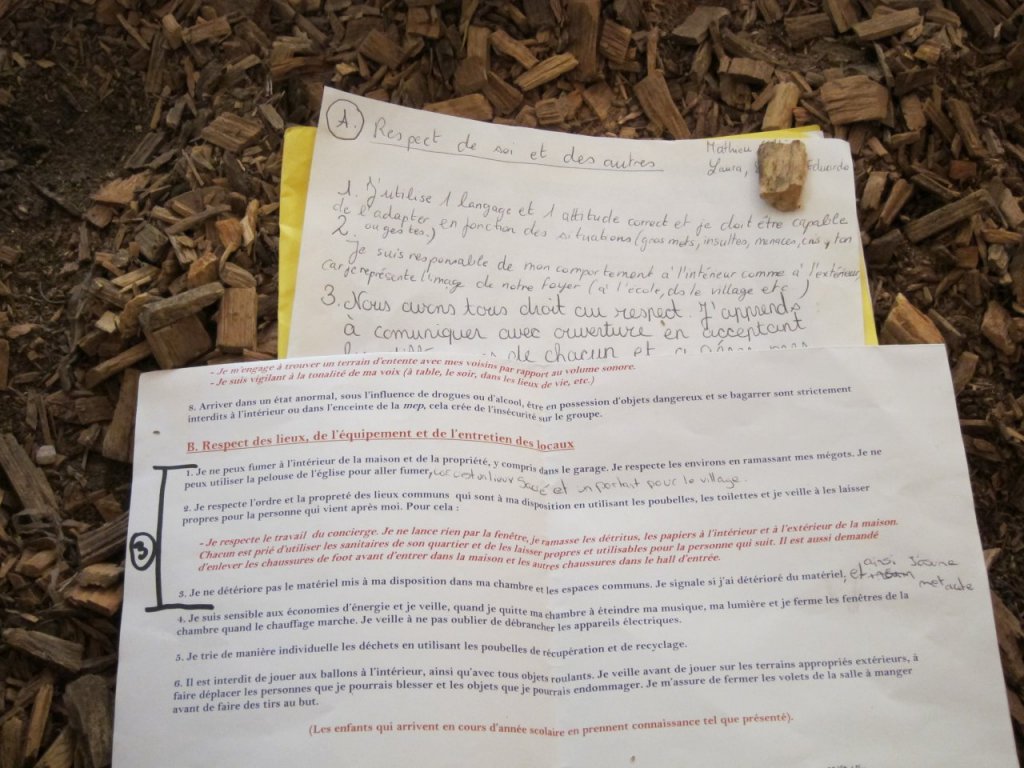 A. Respect de soi et des autres
Mathieu
Laura, Eduardo
1. J'utilise 1 langage et 1 attitude correct et je doit être capable
de l'adapter en fonction des situations (gros mots, insultes, menaces, cris, ton
ou gestes.)
2. Je suis responsable de mon comportement à l'intérieur comme à l'extérieur
car je représente l'image de notre foyer (à l'école, ds le village etc)
3. Nous avons tous droit au respect. J'apprends
à comuniquer avec ouverture en acceptant
de chacun et
- Je m'engage à trouver un terrain d'entente avec mes voisins par rapport au volume sonore.
- Je suis vigilant à la tonalité de ma voix (à table, le soir, dans les lieux de vie, etc.)
8. Arriver dans un état anormal, sous l'influence de drogues ou d'alcool, être en possession d'objets dangereux et se bagarrer sont strictement
interdits à l'intérieur ou dans l'enceinte de la mep, cela crée de l'insécurité sur le groupe.
B. Respect des lieux, de l'équipement et de l'entretien des locaux
1. Je ne peux fumer à l'intérieur de la maison et de la propriété, y compris dans le garage. Je respecte les environs en ramassant mes mégots. Je ne
peux utiliser la pelouse de l'église pour aller fumer, car c'est un lieux Sacré et un portait pour le village.
2. Je respecte l'ordre et la propreté des lieux communs qui sont à ma disposition en utilisant les poubelles, les toilettes et je veille à les laisser
propres pour la personne qui vient après moi. Pour cela :
- Je respecte le travail du concierge. Je ne lance rien par la fenêtre, je ramasse les détritus, les papiers à l'intérieur et à l'extérieur de la maison.
Chacun est prié d'utiliser les sanitaires de son quartier et de les laisser propres et utilisables pour la personne qui suit. Il est aussi demandé
d'enlever les chaussures de foot avant d'entrer dans la maison et les autres chaussures dans le hall d'entrée.
3
3. Je ne détériore pas le matériel mis à ma disposition dans ma chambre et les espaces communs. Je signale si j'ai détérioré du matériel, et ainsi
4. Je suis sensible aux économies d'énergie et je veille, quand je quitte ma chambre à éteindre ma musique, ma lumière et je ferme les fenêtres de la
chambre quand le chauffage marche. Je veille à ne pas oublier de débrancher les appareils électriques.
5. Je trie de manière individuelle les déchets en utilisant les poubelles de récupération et de recyclage.
6. Il est interdit de jouer aux ballons à l'intérieur, ainsi qu'avec tous objets roulants. Je veille avant de jouer sur les terrains appropriés extérieurs, à
faire déplacer les personnes que je pourrais blesser et les objets que je pourrais endommager. Je m'assure de fermer les volets de la salle à manger
avant de faire des tirs au but.
(Les enfants qui arrivent en cours d'année scolaire en prennent connaissance tel que présenté).